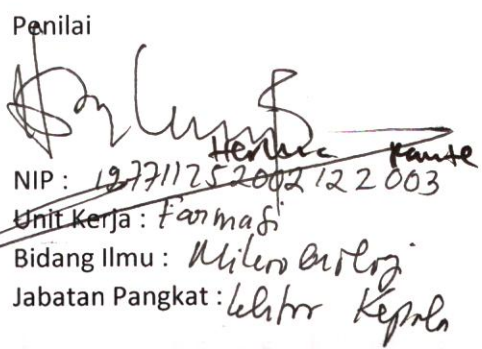 Penilai
NIP : 197711252002122003
Unit Kerja : Farmasi
Bidang Ilmu : Mikrobiologi
Jabatan Pangkat : Lektor Kepala